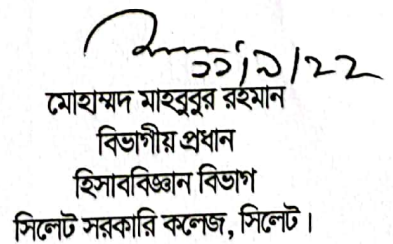 ১১/৯/22
মোহাম্মদ মাহবুবুর রহমান
বিভাগীয় প্রধান
হিসাববিজ্ঞান বিভাগ
সিলেট সরকারি কলেজ, সিলেট।